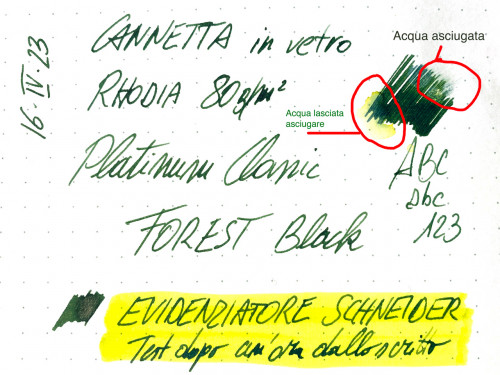 16·IV·23
CANNETTA in vetro
RHODIA 80g/m²
Platinum Classic
FOREST Black
Acqua asciugata
Acqua lasciata
asciugare
ABC
abc
123
EVIDENZIATORE SCHNEIDER
Test dopo un'ora dallo scritto